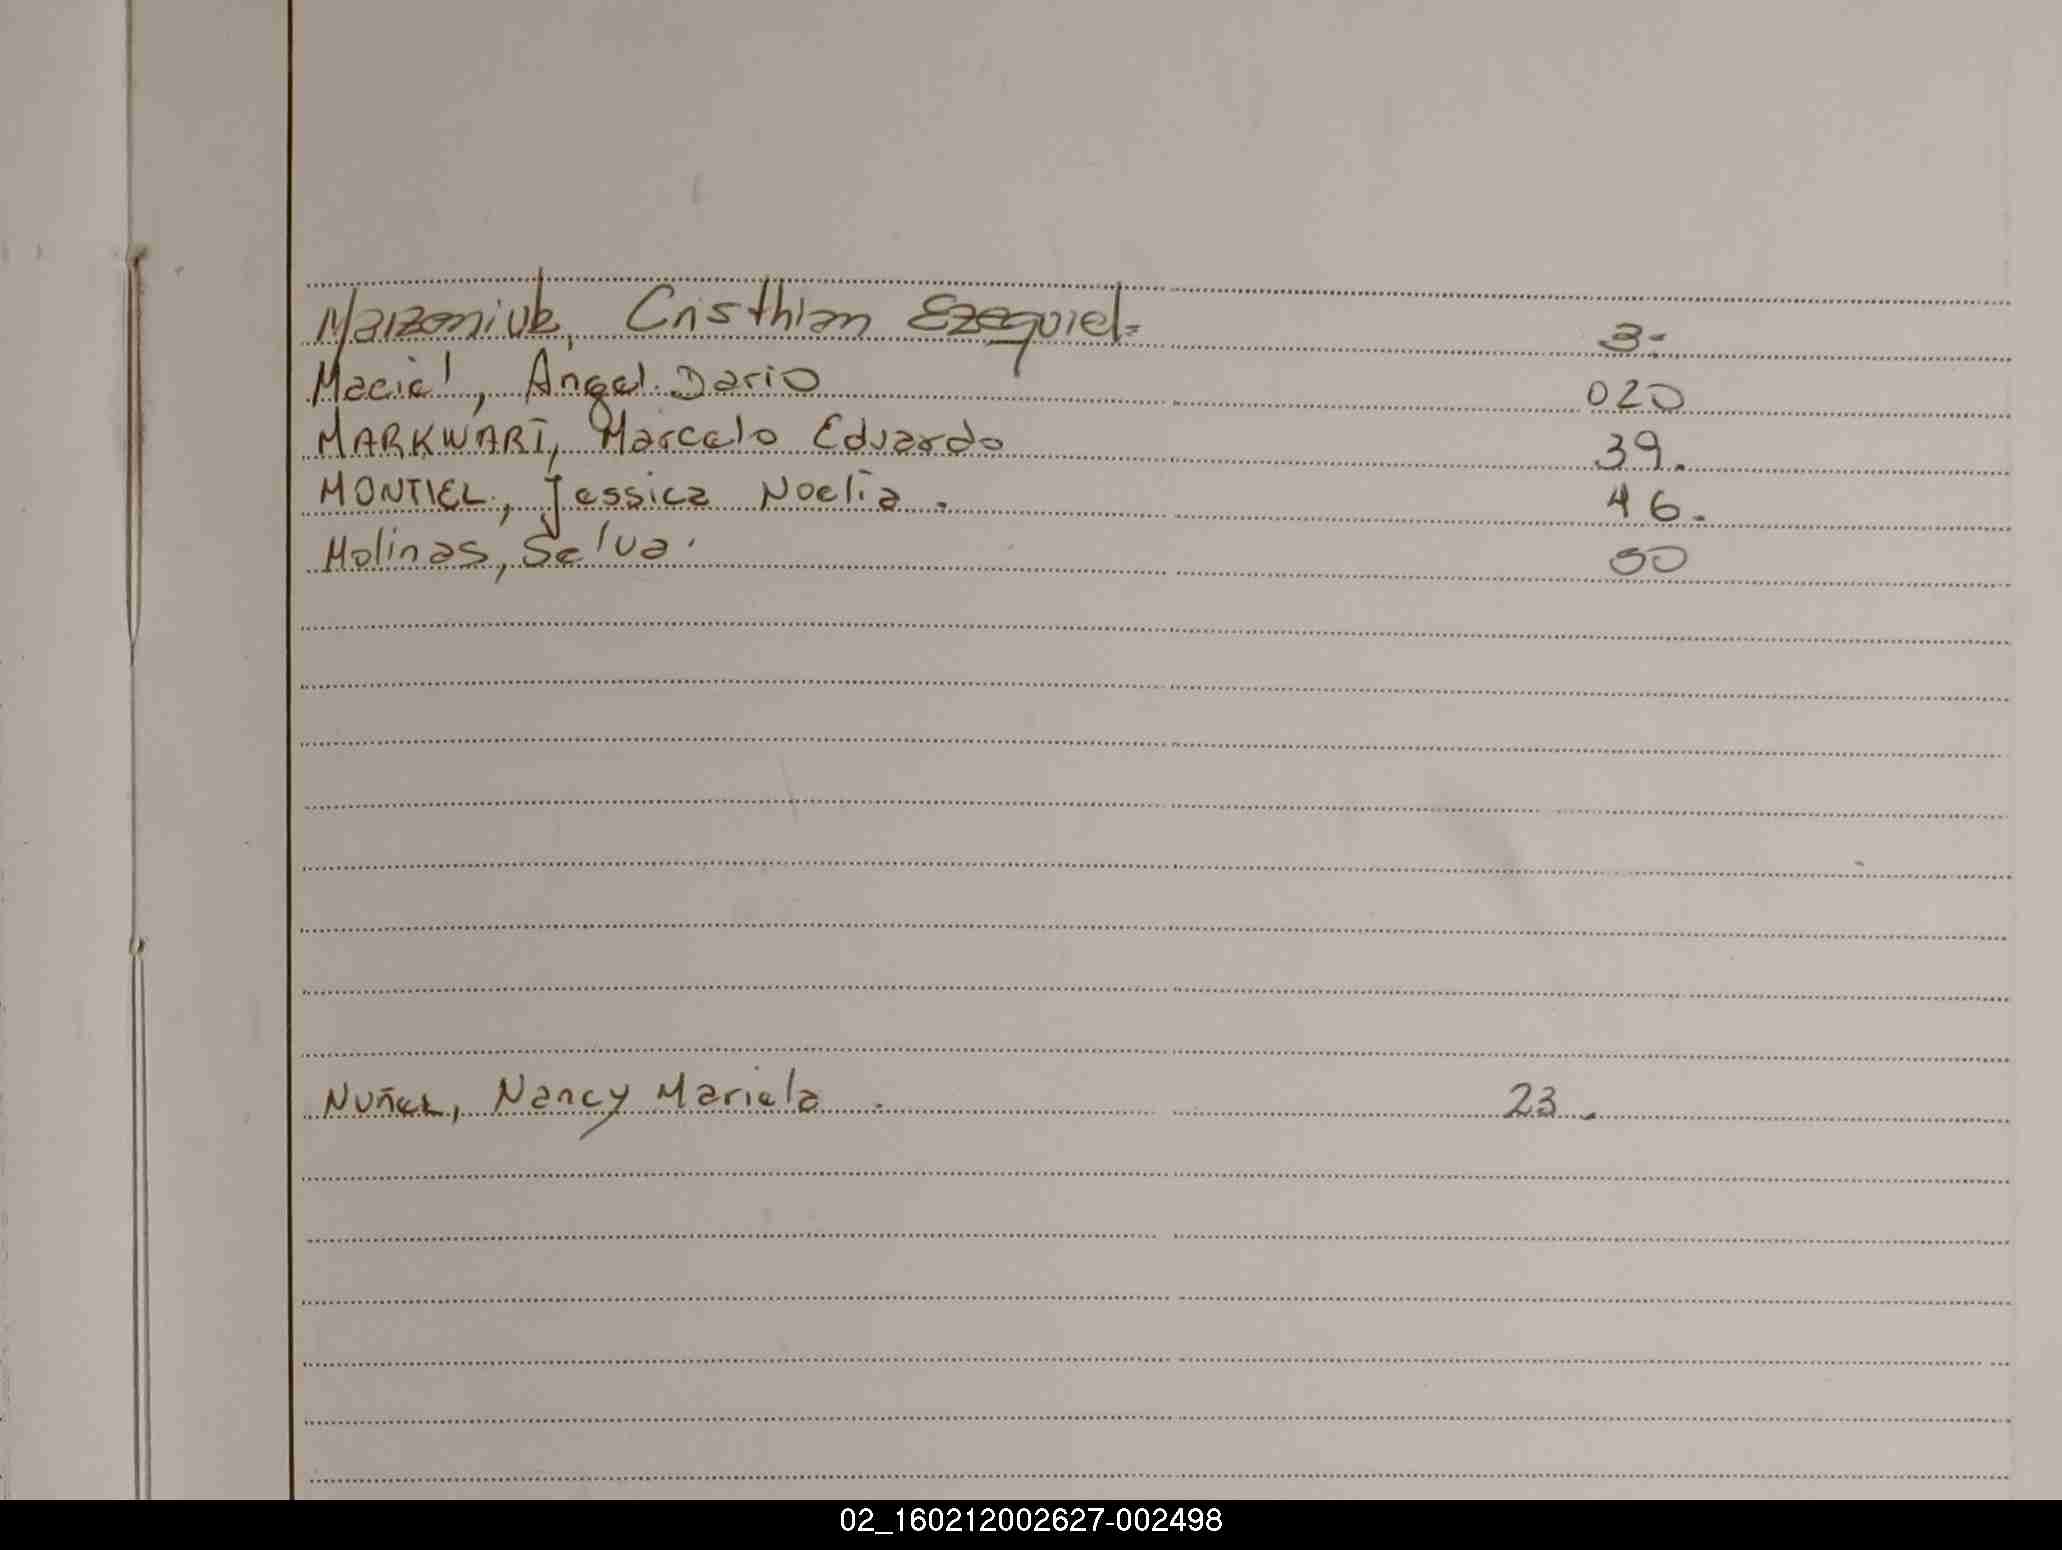 Marzoniuk, Cristhian Ezequiel= 3-
Maciel, Angel Dario 020
MARKWART, Marcelo Eduardo 39.
MONTIEL, Jessica Noelia. 46.
Molinas, Selva. 50
Nuñez, Nancy Mariela. 23.
02_160212002627-002498